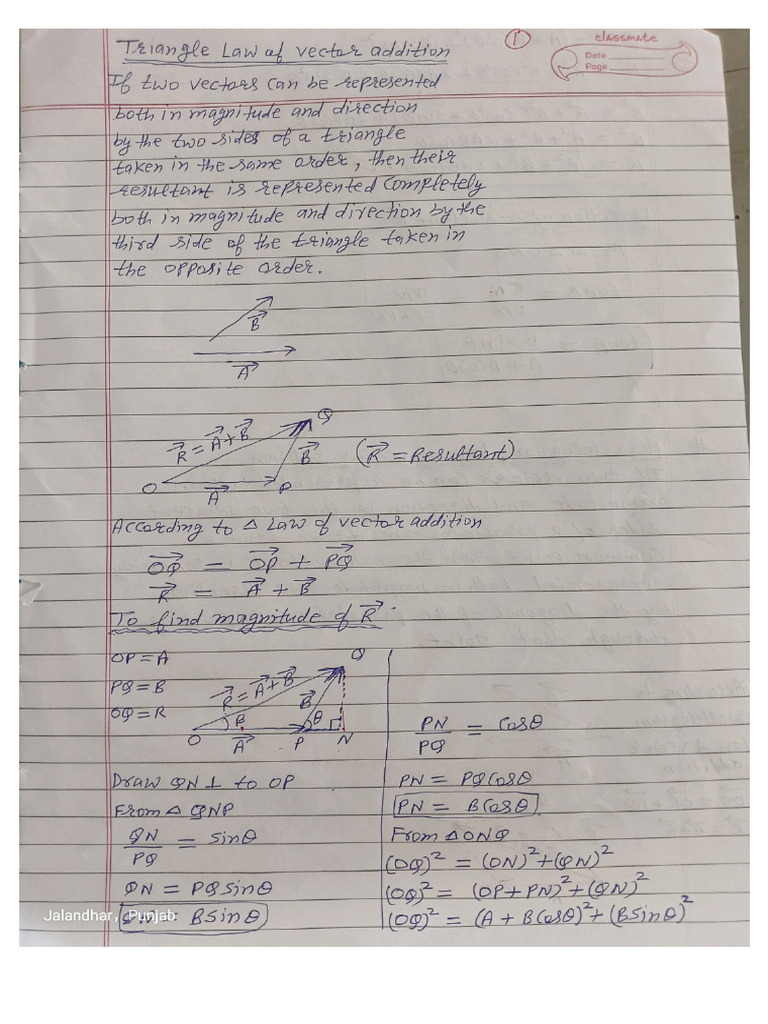 1
classmate
Date
Page
Triangle Law of vector addition
If two vectors can be represented
both in magnitude and direction
by the two sides of a triangle
taken in the same order, then their
resultant is represented completely
both in magnitude and direction by the
third side of the triangle taken in
the opposite order.
B→
A→
Q
R→ = A→ + B→
B→
(R→ = Resultant)
O
A→
P
According to Δ Law of vector addition
OQ→ = OP→ + PQ→
R→ = A→ + B→
To find magnitude of R→.
OP = A
PQ = B
OQ = R
Q
R→ = A→ + B→
B→
β
θ
O
A→
P
N
Draw QN ⊥ to OP
From Δ QNP
QN/PQ = Sinθ
QN = PQ sinθ
QN = B Sinθ
PN/PQ = Cosθ
PN = PQ Cosθ
PN = B Cosθ
From Δ ONQ
(OQ)² = (ON)² + (QN)²
(OQ)² = (OP + PN)² + (QN)²
(OQ)² = (A + B Cosθ)² + (B Sinθ)²
Jalandhar, Punjab